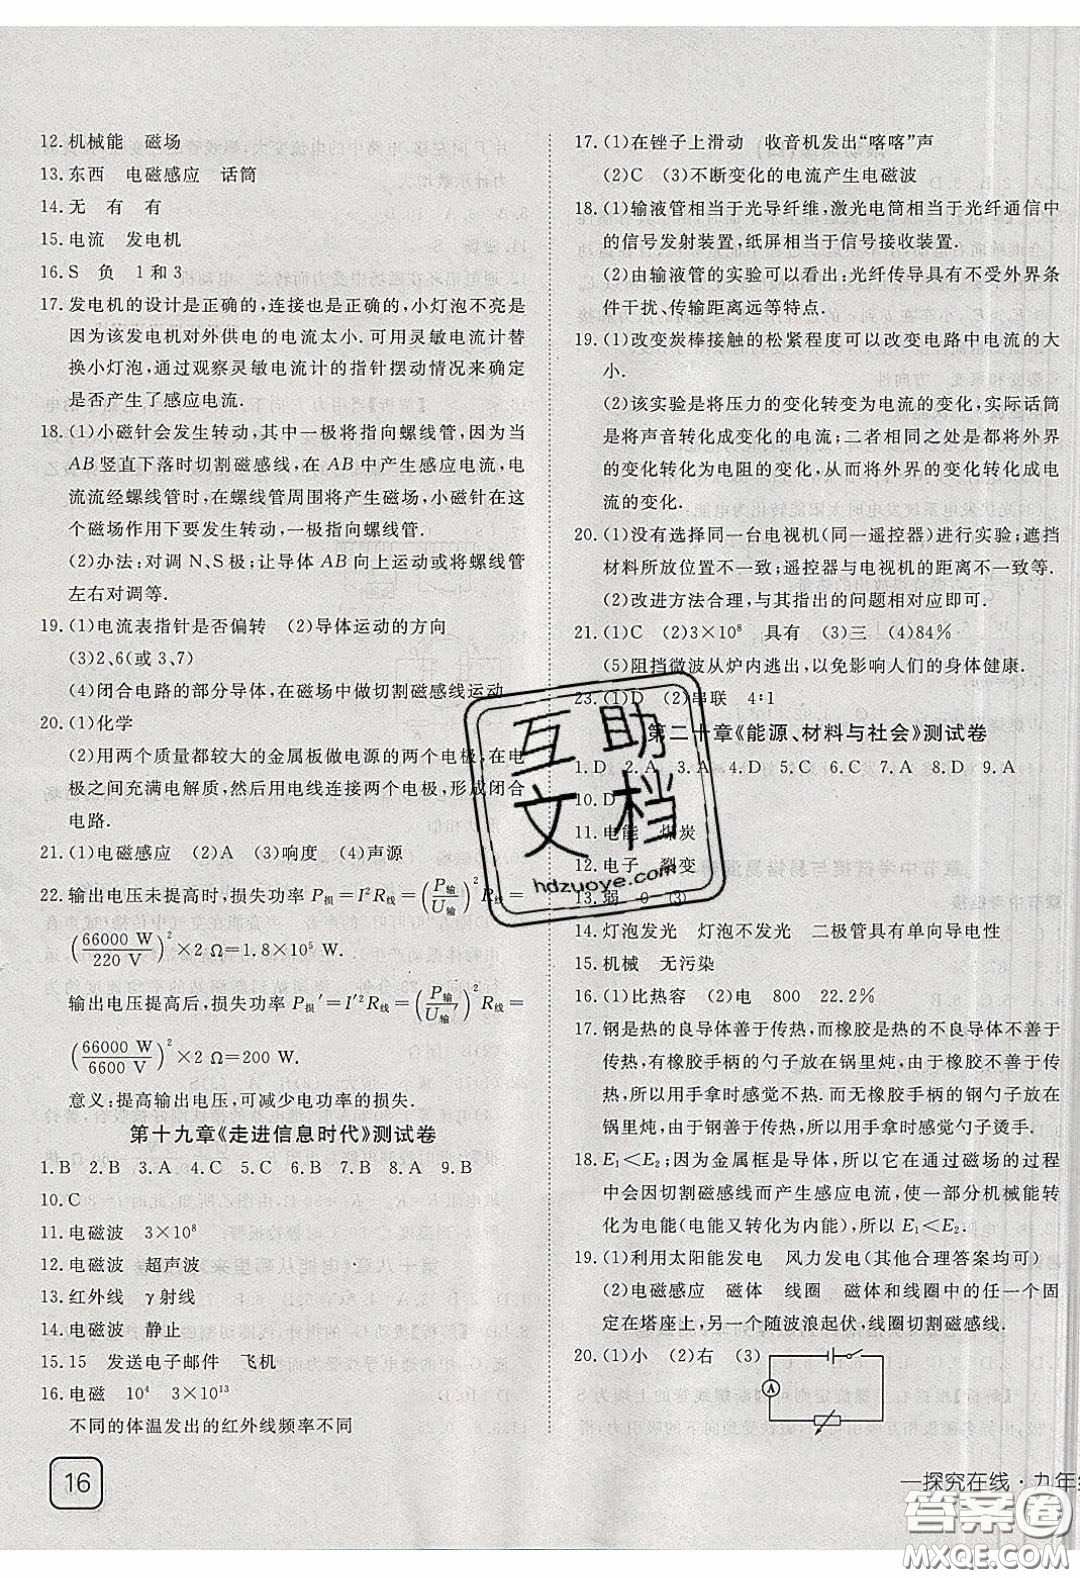 12.机械能　磁场
13.东西　电磁感应　话筒
14.无　有　有
15.电流　发电机
16.S　负　1和3
17.发电机的设计是正确的,连接也是正确的,小灯泡不亮是
因为该发电机对外供电的电流太小.可用灵敏电流计替
换小灯泡,通过观察灵敏电流计的指针摆动情况来确定
是否产生了感应电流.
18.(1)小磁针会发生转动,其中一极将指向螺线管,因为当
AB竖直下落时切割磁感线,在AB中产生感应电流,电
流流经螺线管时,在螺线管周围将产生磁场,小磁针在这
个磁场作用下要发生转动,一极指向螺线管.
(2)办法:对调N、S极;让导体AB向上运动或将螺线管
左右对调等.
19.(1)电流表指针是否偏转　(2)导体运动的方向
(3)2、6(或3、7)
(4)闭合电路的部分导体,在磁场中做切割磁感线运动
20.(1)化学
(2)用两个质量都较大的金属板做电源的两个电极,在电
极之间充满电解质,然后用电线连接两个电极,形成闭合
电路.
21.(1)电磁感应　(2)A　(3)响度　(4)声源
22.输出电压未提高时,损失功率P损=I²R线=(P输/U输)²R线=
(66000 W/220 V)²×2 Ω=1.8×10⁵ W.
输出电压提高后,损失功率P损′=I′²R线=(P输/U输′)²R线=
(66000 W/6600 V)²×2 Ω=200 W.
意义:提高输出电压,可减少电功率的损失.
第十九章《走进信息时代》测试卷
1.B　2.B　3.A　4.C　5.C　6.B　7.B　8.A　9.B
10.C
11.电磁波　3×10⁸
12.电磁波　超声波
13.红外线　γ射线
14.电磁波　静止
15.15　发送电子邮件　飞机
16.电磁　10⁴　3×10¹³
不同的体温发出的红外线频率不同
16
17.(1)在锉子上滑动　收音机发出“喀喀”声
(2)C　(3)不断变化的电流产生电磁波
18.(1)输液管相当于光导纤维,激光电筒相当于光纤通信中
的信号发射装置,纸屏相当于信号接收装置.
(2)由输液管的实验可以看出:光纤传导具有不受外界条
件干扰、传输距离远等特点.
19.(1)改变炭棒接触的松紧程度可以改变电路中电流的大
小.
(2)该实验是将压力的变化转变为电流的变化,实际话筒
是将声音转化成变化的电流;二者相同之处是都将外界
的变化转化为电阻的变化,从而将外界的变化转化成电
流的变化.
20.(1)没有选择同一台电视机(同一遥控器)进行实验;遮挡
材料所放位置不一致;遥控器与电视机的距离不一致等.
(2)改进方法合理,与其指出的问题相对应即可.
21.(1)C　(2)3×10⁸　具有　(3)三　(4)84%
(5)阻挡微波从炉内逃出,以免影响人们的身体健康.
23.(1)D　(2)串联　4:1
第二十章《能源、材料与社会》测试卷
1.D　2.A　3.A　4.D　5.C　6.C　7.A　8.D　9.A
10.D
11.电能　煤炭
12.电子　裂变
13.弱　0　(3)
14.灯泡发光　灯泡不发光　二极管具有单向导电性
15.机械　无污染
16.(1)比热容　(2)电　800　22.2%
17.钢是热的良导体善于传热,而橡胶是热的不良导体不善于
传热,有橡胶手柄的勺子放在锅里炖,由于橡胶不善于传
热,所以用手拿时感觉不太热.而无橡胶手柄的钢勺子放在
锅里炖,由于钢善于传热,所以用手拿时感觉勺子烫手.
18.E₁<E₂;因为金属框是导体,所以它在通过磁场的过程
中会因切割磁感线而产生感应电流,使一部分机械能转
化为电能(电能又转化为内能),所以E₁<E₂.
19.(1)利用太阳能发电　风力发电(其他合理答案均可)
(2)电磁感应　磁体　线圈　磁体和线圈中的任一个固
定在塔座上,另一个随波浪起伏,线圈切割磁感线.
20.(1)小　(2)右　(3)
A
一探究在线·九年
互助
文档
hdzuoye.com
答案圈
MXQE.COM